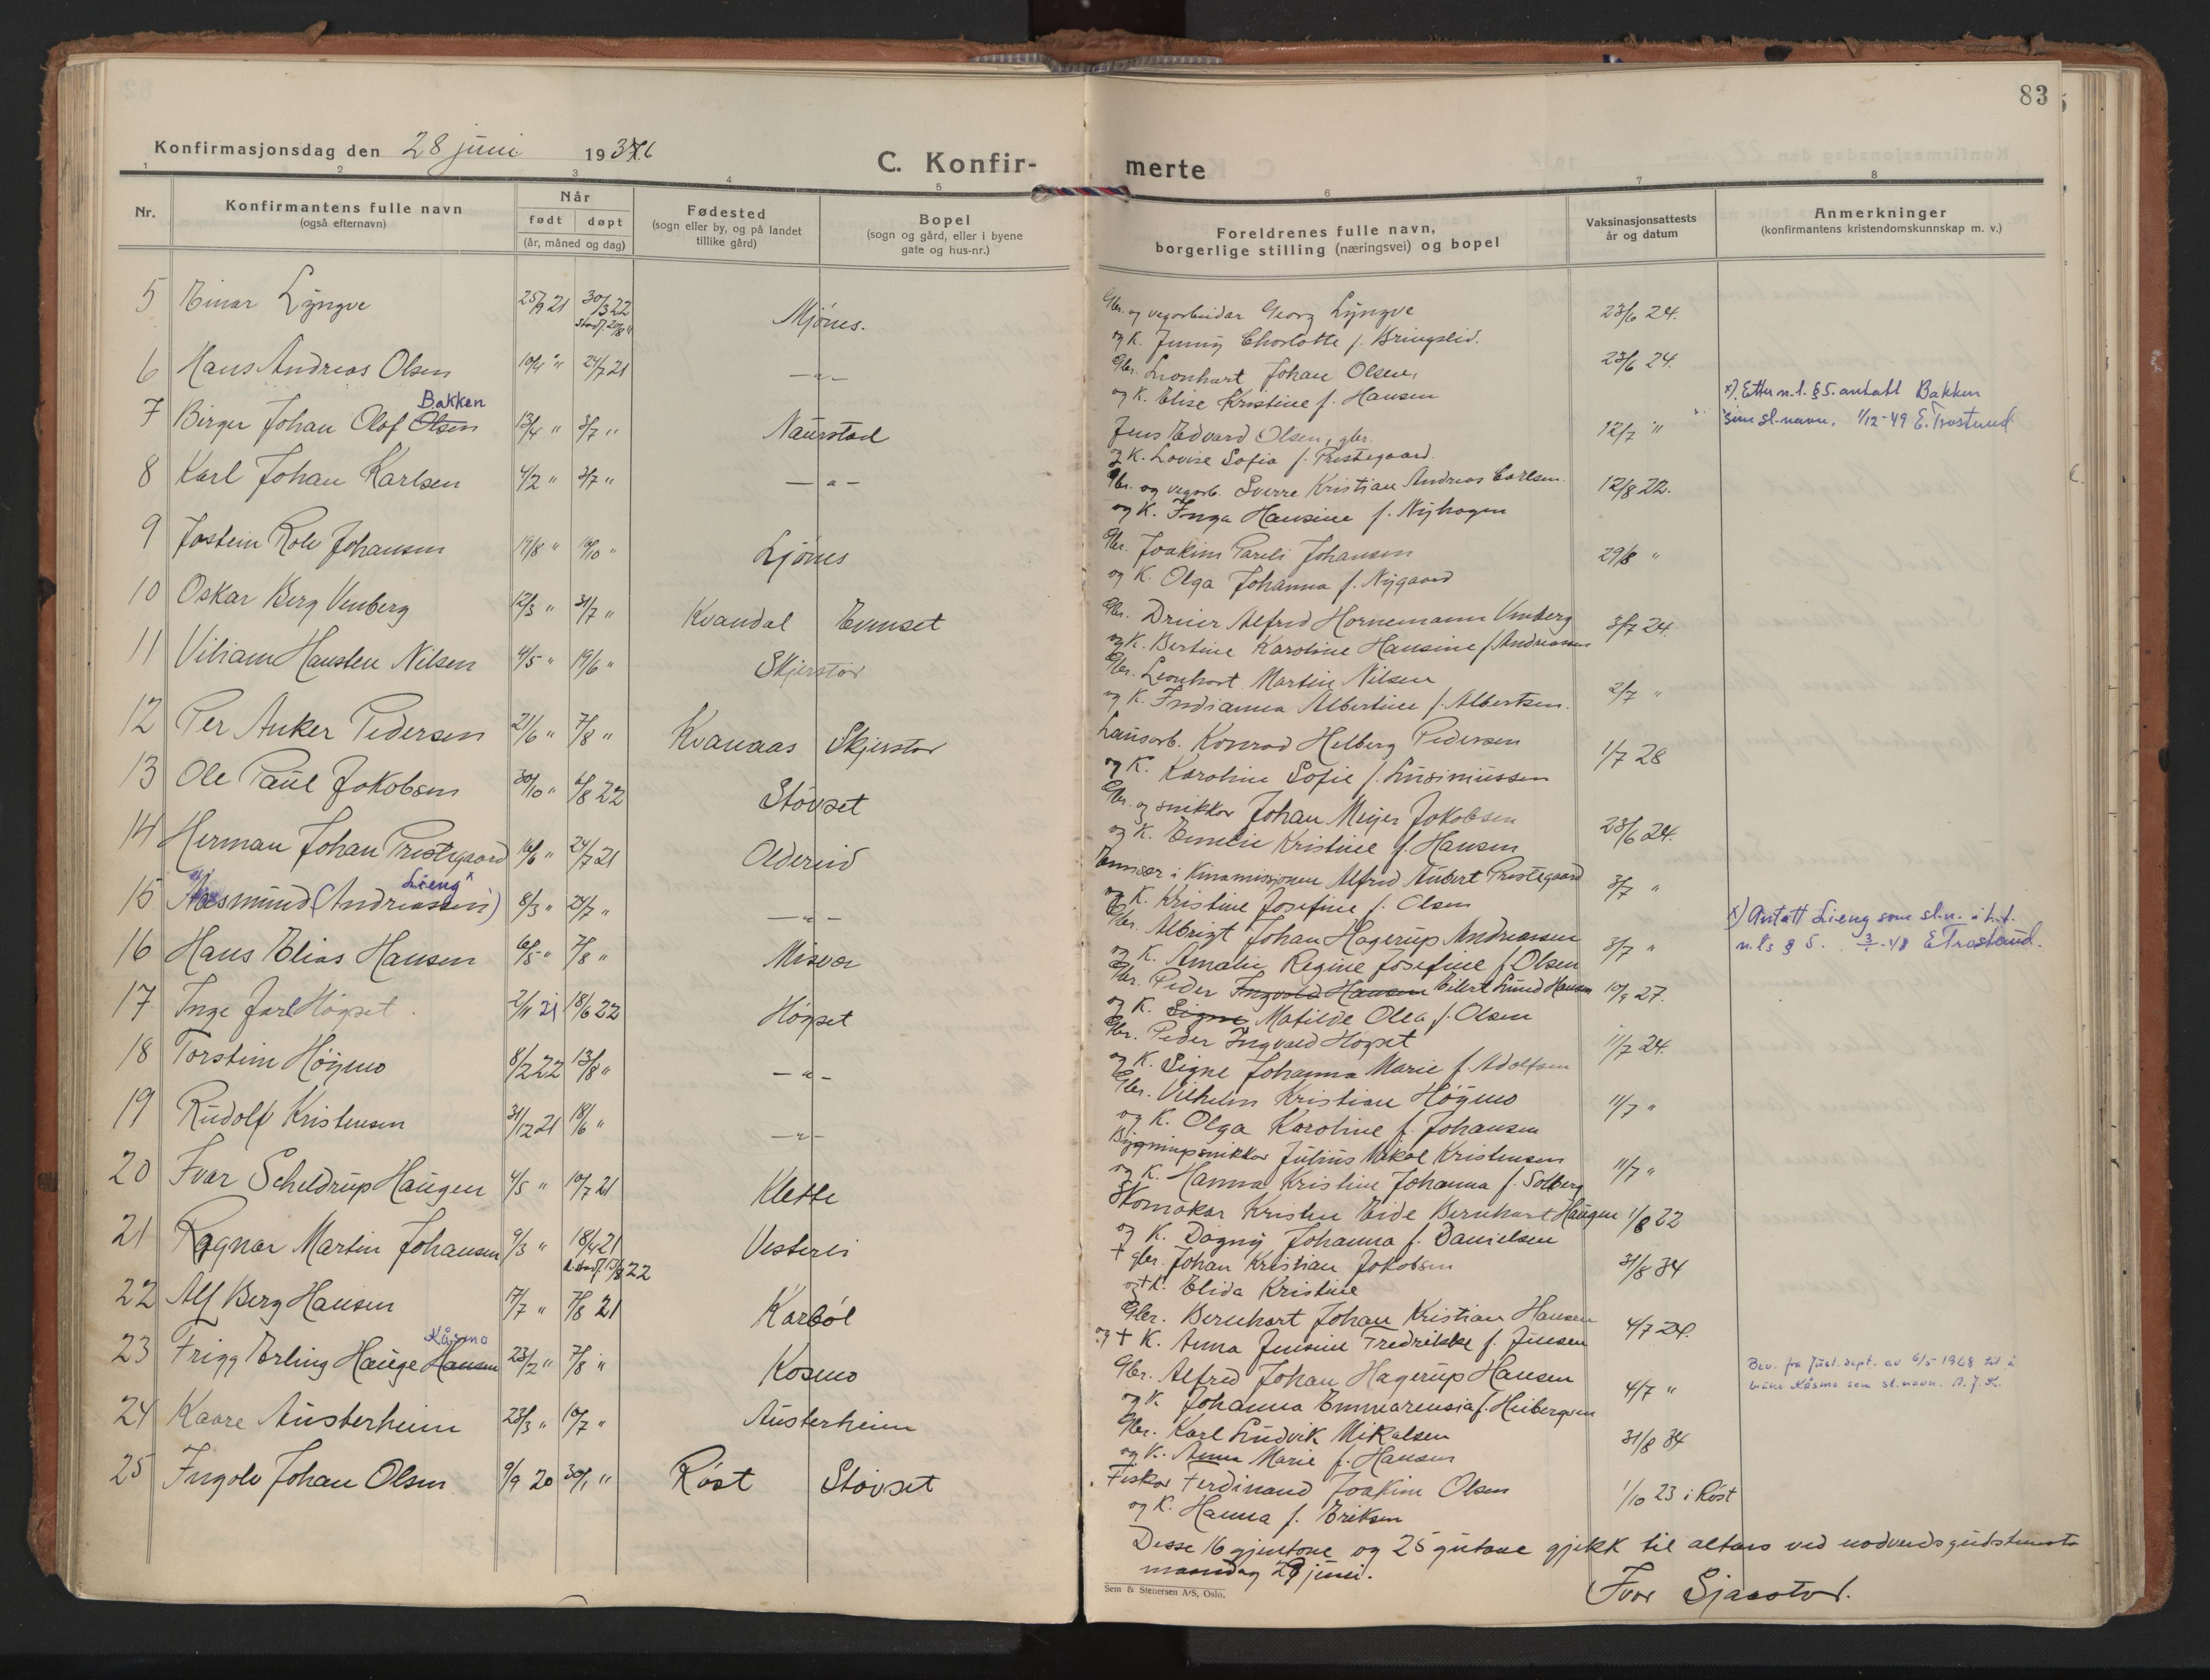 83
Konfirmasjonsdag den 28 juni 1936
C. Konfirmerte
1 2 3 4 5 6 7 8
Nr. Konfirmantens fulle navn (også efternavn) Når født døpt (år, måned og dag) Fødested (sogn eller by, og på landet tillike gård) Bopel (sogn og gård, eller i byene gate og hus-nr.) Foreldrenes fulle navn, borgerlige stilling (næringsvei) og bopel Vaksinasjonsattests år og datum Anmerkninger (konfirmantens kristendomskunnskap m. v.)
5 Einar Lyngve 25/9 21 30/3 22 stadf. 20/8 " Mjönes. Gbr. og vegarbeidar Georg Lyngve 23/6 24.
og K. Jenny Charlotte f. Bringslid.
6 Hans Andreas Olsen 10/4 " 24/7 21 —"— Gbr. Leonhart Johan Olsen, 23/6 24.
og K. Elise Kristine f. Hansen
7 Birger Johan Olaf Olsen Bakken 13/4 " 3/7 " Naurstad Jens Edvard Olsen, gbr. 12/7 " x) Etter n.l. § 5. antatt Bakken
og K. Lovise Sofia f. Prestegaard. som sl.navn. 1/12-49 E. Trostrud
8 Karl Johan Karlsen 4/2 " 3/7 " —"— Gbr. og vegarb. Sverre Kristian Andreas Carlsen 12/8 22.
og K. Inga Hansine f. Nyhagen
9 Jostein Rolv Johansen 19/8 " 16/10 " Ljönes Gbr. Joakim Pareli Johansen 29/8 "
og K. Olga Johanna f. Nygaard
10 Oskar Berg Venberg 12/3 " 31/7 " Kvandal Evenset Gbr. Dreier Alfred Hornemann Venberg 3/7 24.
og K. Bertine Karoline Hansine f. Andreassen
11 Viliam Hansten Nilsen 4/5 " 19/6 " Skjerstad Gbr. Leonhart Martin Nilsen 2/7 "
og K. Indianna Albertine f. Albertsen.
12 Per Anker Pedersen 21/6 " 7/8 " Kvanaas Skjerstad Lausarb. Konrad Helberg Pedersen 1/7 28
og K. Karoline Sofie f.
13 Ole Paul Jakobsen 30/10 " 6/8 22 Stövset Gbr. og snikkar Johan Meyer Jakobsen 23/6 24.
og K. Emelie Kristine f. Hansen
14 Herman Johan Prestegaard 16/6 " 24/7 21 Oldereid Emissær i Kinamissjonen Alfred Aubert Prestegaard 3/7 "
og K. Kristine Josefine f. Olsen
15 Aasmund (Andreassen) Lieng x 8/3 " 24/7 " —"— Gbr. Albrigt Johan Hagerup Andreassen 3/7 " x) Antatt Lieng som sl.n. i h.t.
og K. Amalie Regine Josefine f. Olsen n.ls § 5. E Trostrud.
16 Hans Elias Hansen 6/5 " 7/8 " Misvær Gbr. Peder Ingvald Hansen Eilert Lund Hansen 10/9 27.
og K. Signe Matilde Olea f. Olsen
17 Inge Jarl Högset 2/11 21 18/6 22 Högset Gbr. Peder Ingvald Högset 11/7 24.
og K. Signe Johanna Marie f. Adolfsen
18 Torstein Högmo 8/2 22 13/8 " —"— Gbr. Vilhelm Kristian Högmo 11/7 "
og K. Olga Karoline f. Johansen
19 Rudolf Kristensen 31/12 21 18/6 " —"— Bygningssnikkar Julius Mikal Kristensen 11/7 "
og K. Hanna Kristine Johanna f. Solberg
20 Ivar Scheldrup Haugen 4/5 " 10/7 21 Klette Skomakar Kristen Eide Bernhart Haugen 1/8 22
og K. Dagny Johanna f. Danielsen
21 Ragnar Martin Johansen 9/3 " 18/4 21 stadf. 13/8 22 Vesterli + gbr. Johan Kristian Jakobsen 31/8 34
og + K. Elida Kristine
22 Alf Berg Hansen 17/7 " 7/8 21 Karböl Gbr. Bernhart Johan Kristian Hansen 4/7 24.
og + K. Anna Jensine Fredrikke f. Jensen
23 Frigg Erling Hauge Hansen Kåsmo 23/2 " 7/8 " Kosmo Gbr. Alfred Johan Hagerup Hansen 4/7 " Bev. fra Just.dept. av 6/5-1968 til å
og K. Johanna Emmarensia f. Heibergsen bruke Kåsmo som sl.navn.
24 Kaare Austerheim 23/3 " 10/7 " Austerheim Gbr. Karl Ludvik Mikalsen 31/8 34
og K. Anna Marie f. Hansen
25 Ingolv Johan Olsen 9/9 20 30/1 " Röst Stövset Fiskar Ferdinand Joakim Olsen 1/10 23 i Röst
og K. Hanna f. Eriksen
Desse 16 gjentone og 25 gutane gjekk til altars ved nadverdsgudstenesta
maandag 29 juni.
Ivar Sjaastad.
Sem & Stenersen A/S, Oslo.